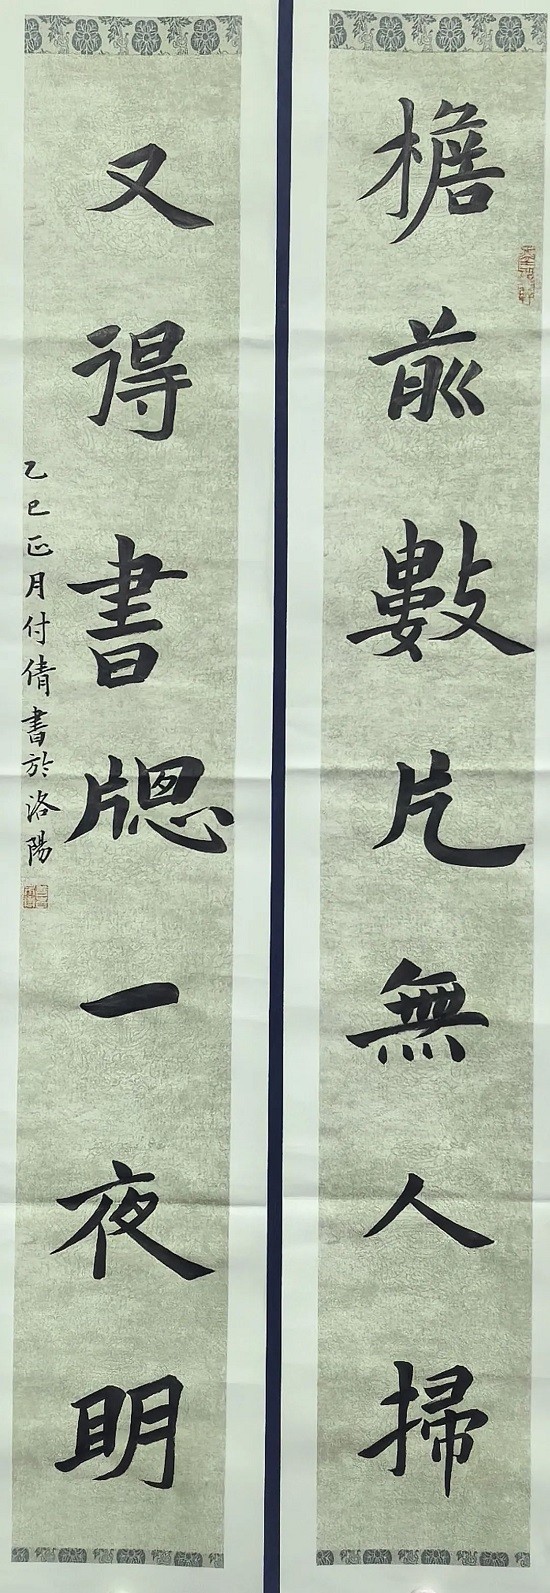 檐前數片無人掃
又得書牕一夜明
乙巳正月付倩書於洛陽